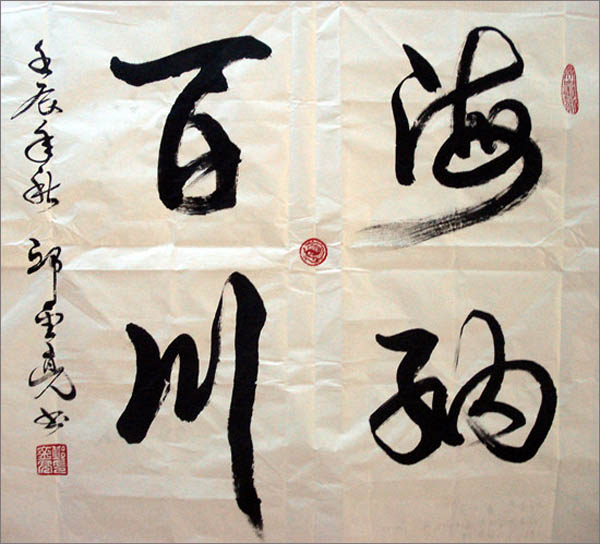 海纳
百川
壬辰年秋 邱云亮书